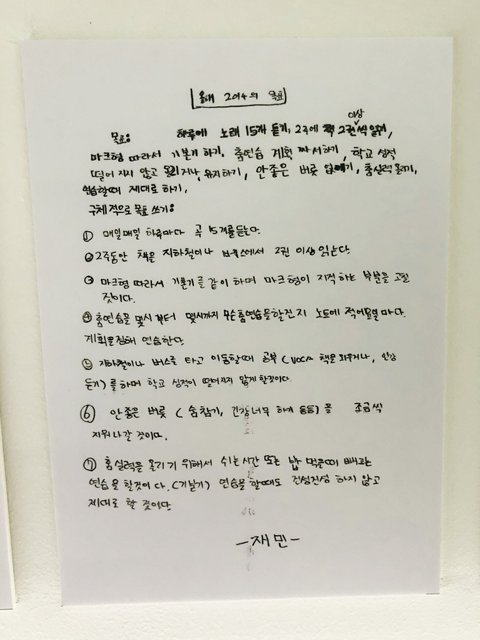 올해 2014의 목표
이상
목표: 하루에 노래 15개 듣기, 2주에 책 2권씩 읽기,
마크형 따라서 기본기 하기, 춤연습 계획 짜서하기, 학교 성적
떨어지지 않고 올리거나, 유지하기, 안좋은 버릇 없애기, 춤실력 올리기,
연습할때 제대로 하기,
구체적으로 목표 쓰기:
① 매일매일 하루마다 곡 15개를듣는다.
② 2주동안 책은 지하철이나 버스에서 2권 이상 읽는다.
③ 마크형 따라서 기본기를 같이 하며 마크형이 지적하는 부분을 고칠
것이다.
④ 춤연습을 몇시부터 몇시까지 무슨춤연습을할건지 노트에 적어 마다.
계획을 해 연습한다.
⑤ 지하철이나 버스를 타고 이동할때 공부(voca 책을 외우거나, 인강
듣기)를 하며 학교 성적이 떨어지지 않게 할것이다.
⑥ 안좋은 버릇 (숨참기, 긴장너무 하기 등등)을 조금씩
지워나갈 것이다.
⑦ 춤실력을 올리기 위해서 쉬는시간 또는 밥 먹을때 빼고는
연습을 할것이다.(기본기) 연습을 할때도 건성건성 하지 않고
제대로 할 것이다
-재민-